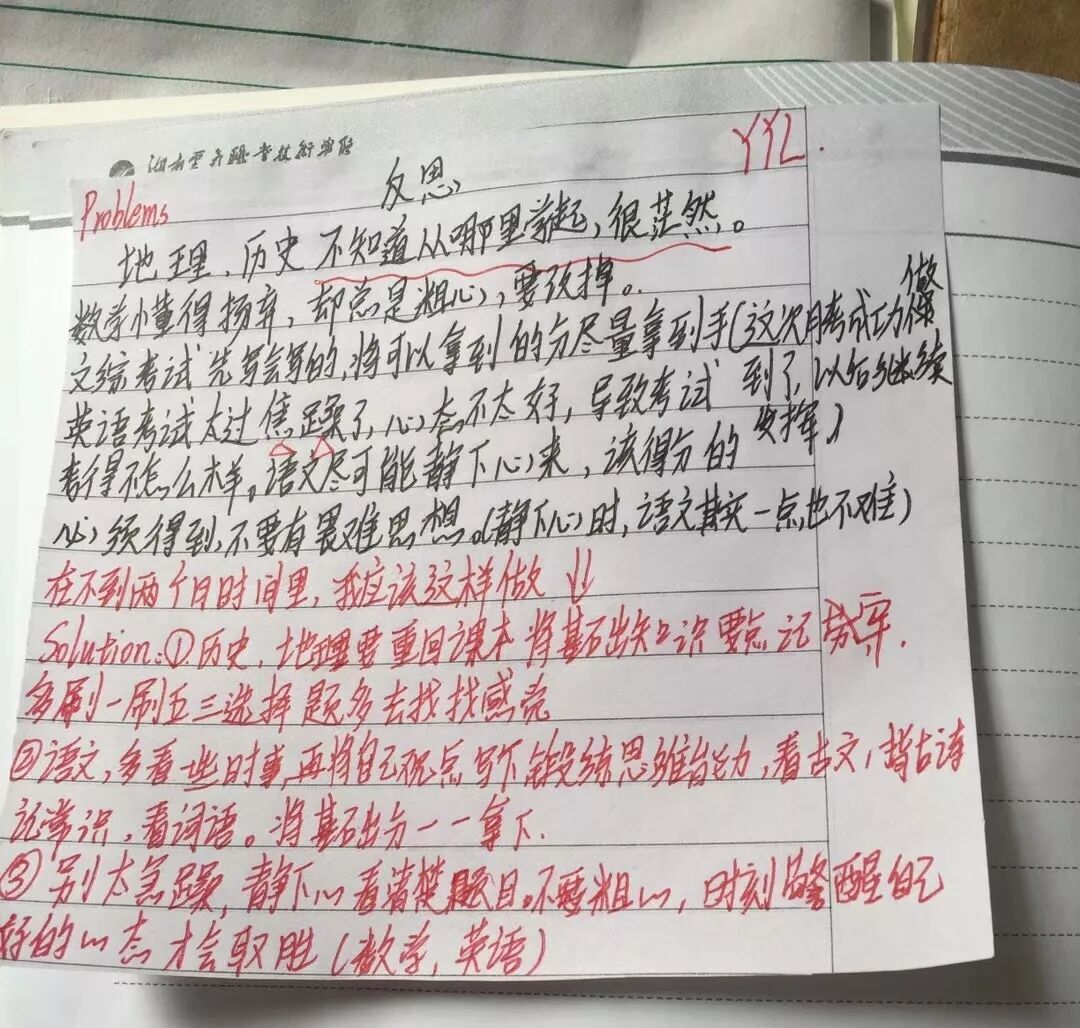 YYL.
Problems
反思
地理、历史 不知道从哪里学起,很茫然。
数学懂得扬弃,却总是粗心,要改掉。
文综考试 先写会写的,将可以拿到的分尽量拿到手(这次月考成功做
到了,以后继续
发挥)
英语考试太过焦躁了,心态不太好,导致考试
考得不怎么样。语文尽可能静下心来,该得分的
心须得到,不要有畏难思想。(静下心时,语文其实一点也不难)
在不到两个月时间里,我应该这样做
Solution:①历史、地理要重回课本 将基础知识要点记劳牢.
多刷一刷五三选择题多去找找感觉
②语文,多看些时事,再将自己观点写下 锻练思维能力,看古文,背古诗
记常识,看词语。将基础分一一拿下.
③别太急躁,静下心看清楚题目。不要粗心,时刻警醒自己
好的心态才会取胜(数学,英语)